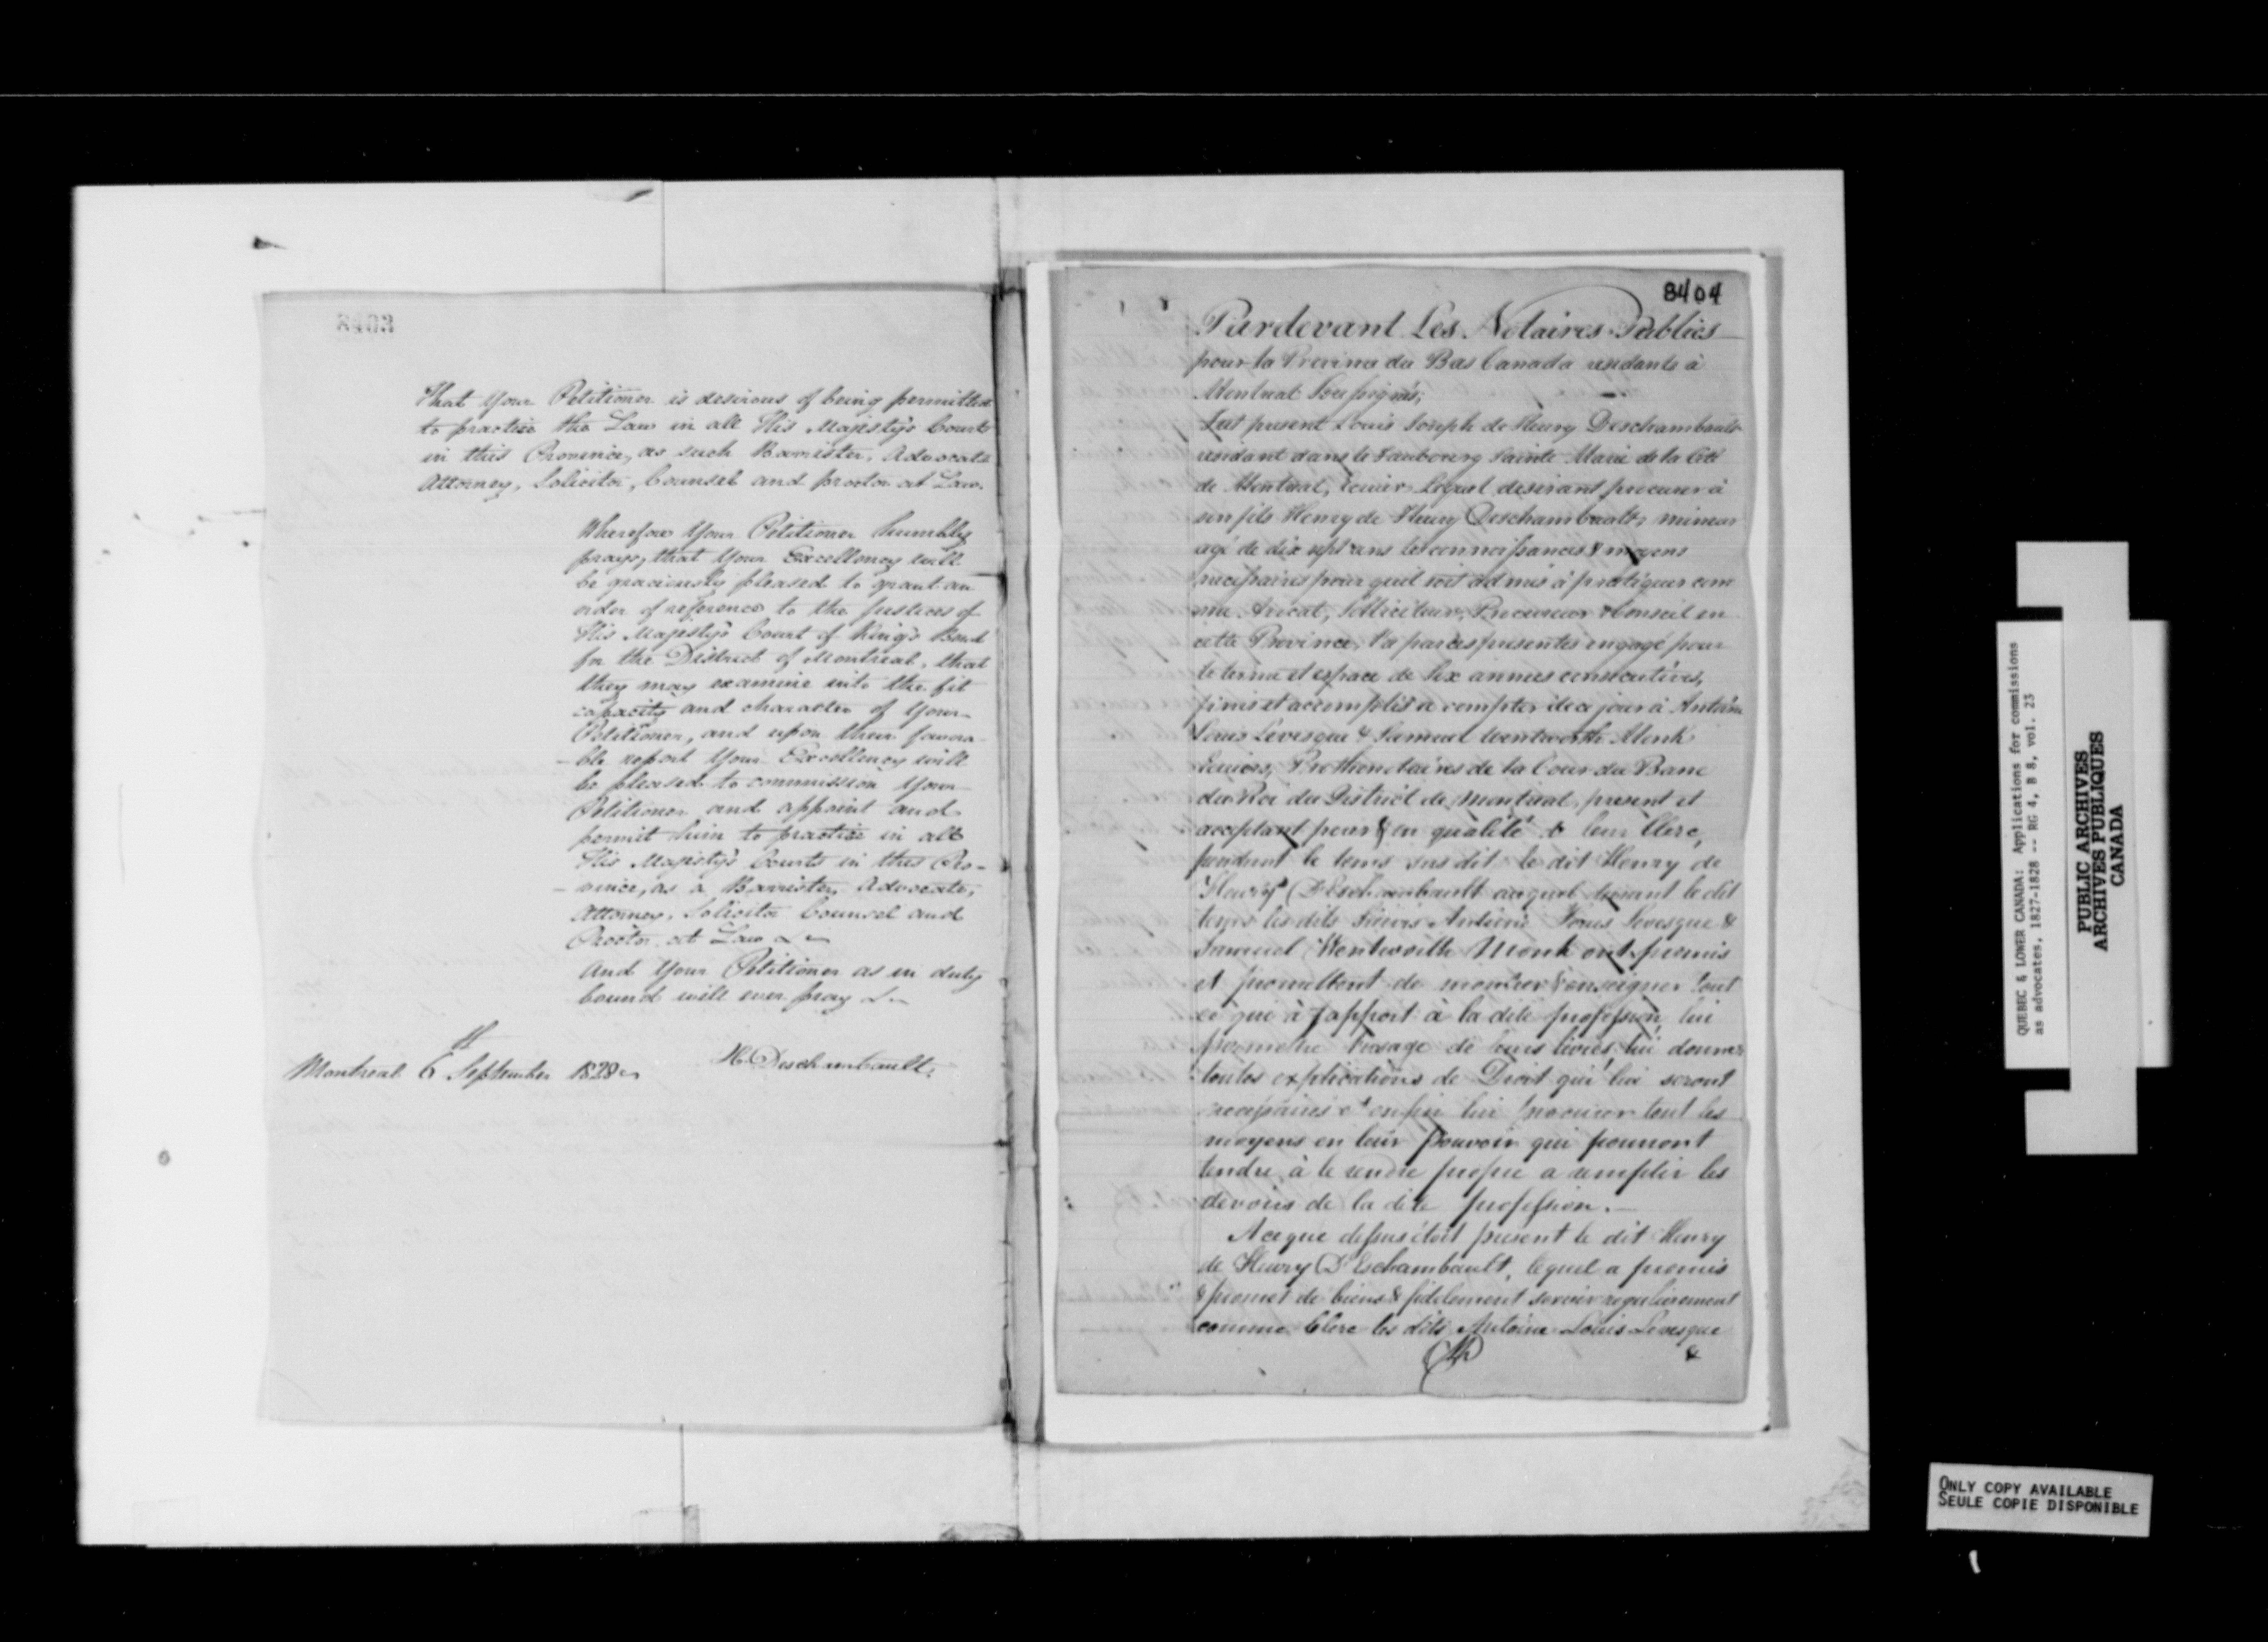 8403
That your Petitioner is desirous of being permitted
to practice the Law in all His Majesty's Courts
in this Province, as such Barrister, Advocate
Attorney, Solicitor, Counsel and proctor at Law.
Wherefore Your Petitioner humbly
prays, that Your Excellency will
be graciously pleased to grant an
order of reference to the justices of
His Majesty's Court of King's Bench
for the District of Montreal, that
they may examine into the fit
capacity and character of your
Petitioner, and upon their favora
- ble report Your Excellency will
be pleased to commission your
Petitioner and appoint and
permit him to practice in all
His Majesty's Courts in this Pro-
- vince, as a Barrister, Advocate,
Attorney, Solicitor Counsel and
Proctor at Law &c
And Your Petitioner as in duty
bound will ever pray &c
Montreal 6th September 1828
H. Deschambault.
8404
Pardevant Les Notaires Publics
pour la Province du Bas Canada residants à
Montreal Soussignés;
Fut present Louis Joseph de Fleury Deschambault
residant dans le Faubourg Sainte Marie de la Cité
de Montreal, Ecuier, Lequel desirant procurer à
son fils Henry de Fleury Deschambault, mineur
agé de dix sept ans les connoissances & moyens
necessaires pour quil soit admis à pratiquer com
me Avocat, Solliciteur, Procureur & Conseil en
cette Province, l'a par ces presentes engagé pour
le terme et espace de Six annees consecutives,
finis et accomplis à compter de ce jour à Antoine
Louis Levesque & Samuel Wentworth Monk
Ecuiers, Prothonotaires de la Cour du Banc
du Roi du District de Montreal, present et
acceptant pour & en qualité de leur Clerc,
pendant le tems sus dit le dit Henry de
Fleury D'Eschambault auquel durant le dit
tems les dits Sieurs Antoine Louis Levesque &
Samuel Wentworth Monk ont promis
et promettent de montrer & enseigner tout
ce qui à rapport à la dite profession, lui
permettre l'usage de leurs livres, lui donner
toutes explications de Droit qui lui seront
necessaires et enfin lui procurer tout les
moyens en leur pouvoir qui pourront
tendre à le rendre propre a remplir les
devoirs de la dite profession.
A ce que dessus étoit présent le dit Henry
de Fleury D'Eschambault, lequel a promis
& promet de bien & fidelement servir regulierement
comme Clerc les dits Antoine Louis Levesque
&
QUEBEC & LOWER CANADA: Applications for commissions
as advocates, 1827-1828 -- RG 4, B 8, vol. 23
PUBLIC ARCHIVES
ARCHIVES PUBLIQUES
CANADA
ONLY COPY AVAILABLE
SEULE COPIE DISPONIBLE